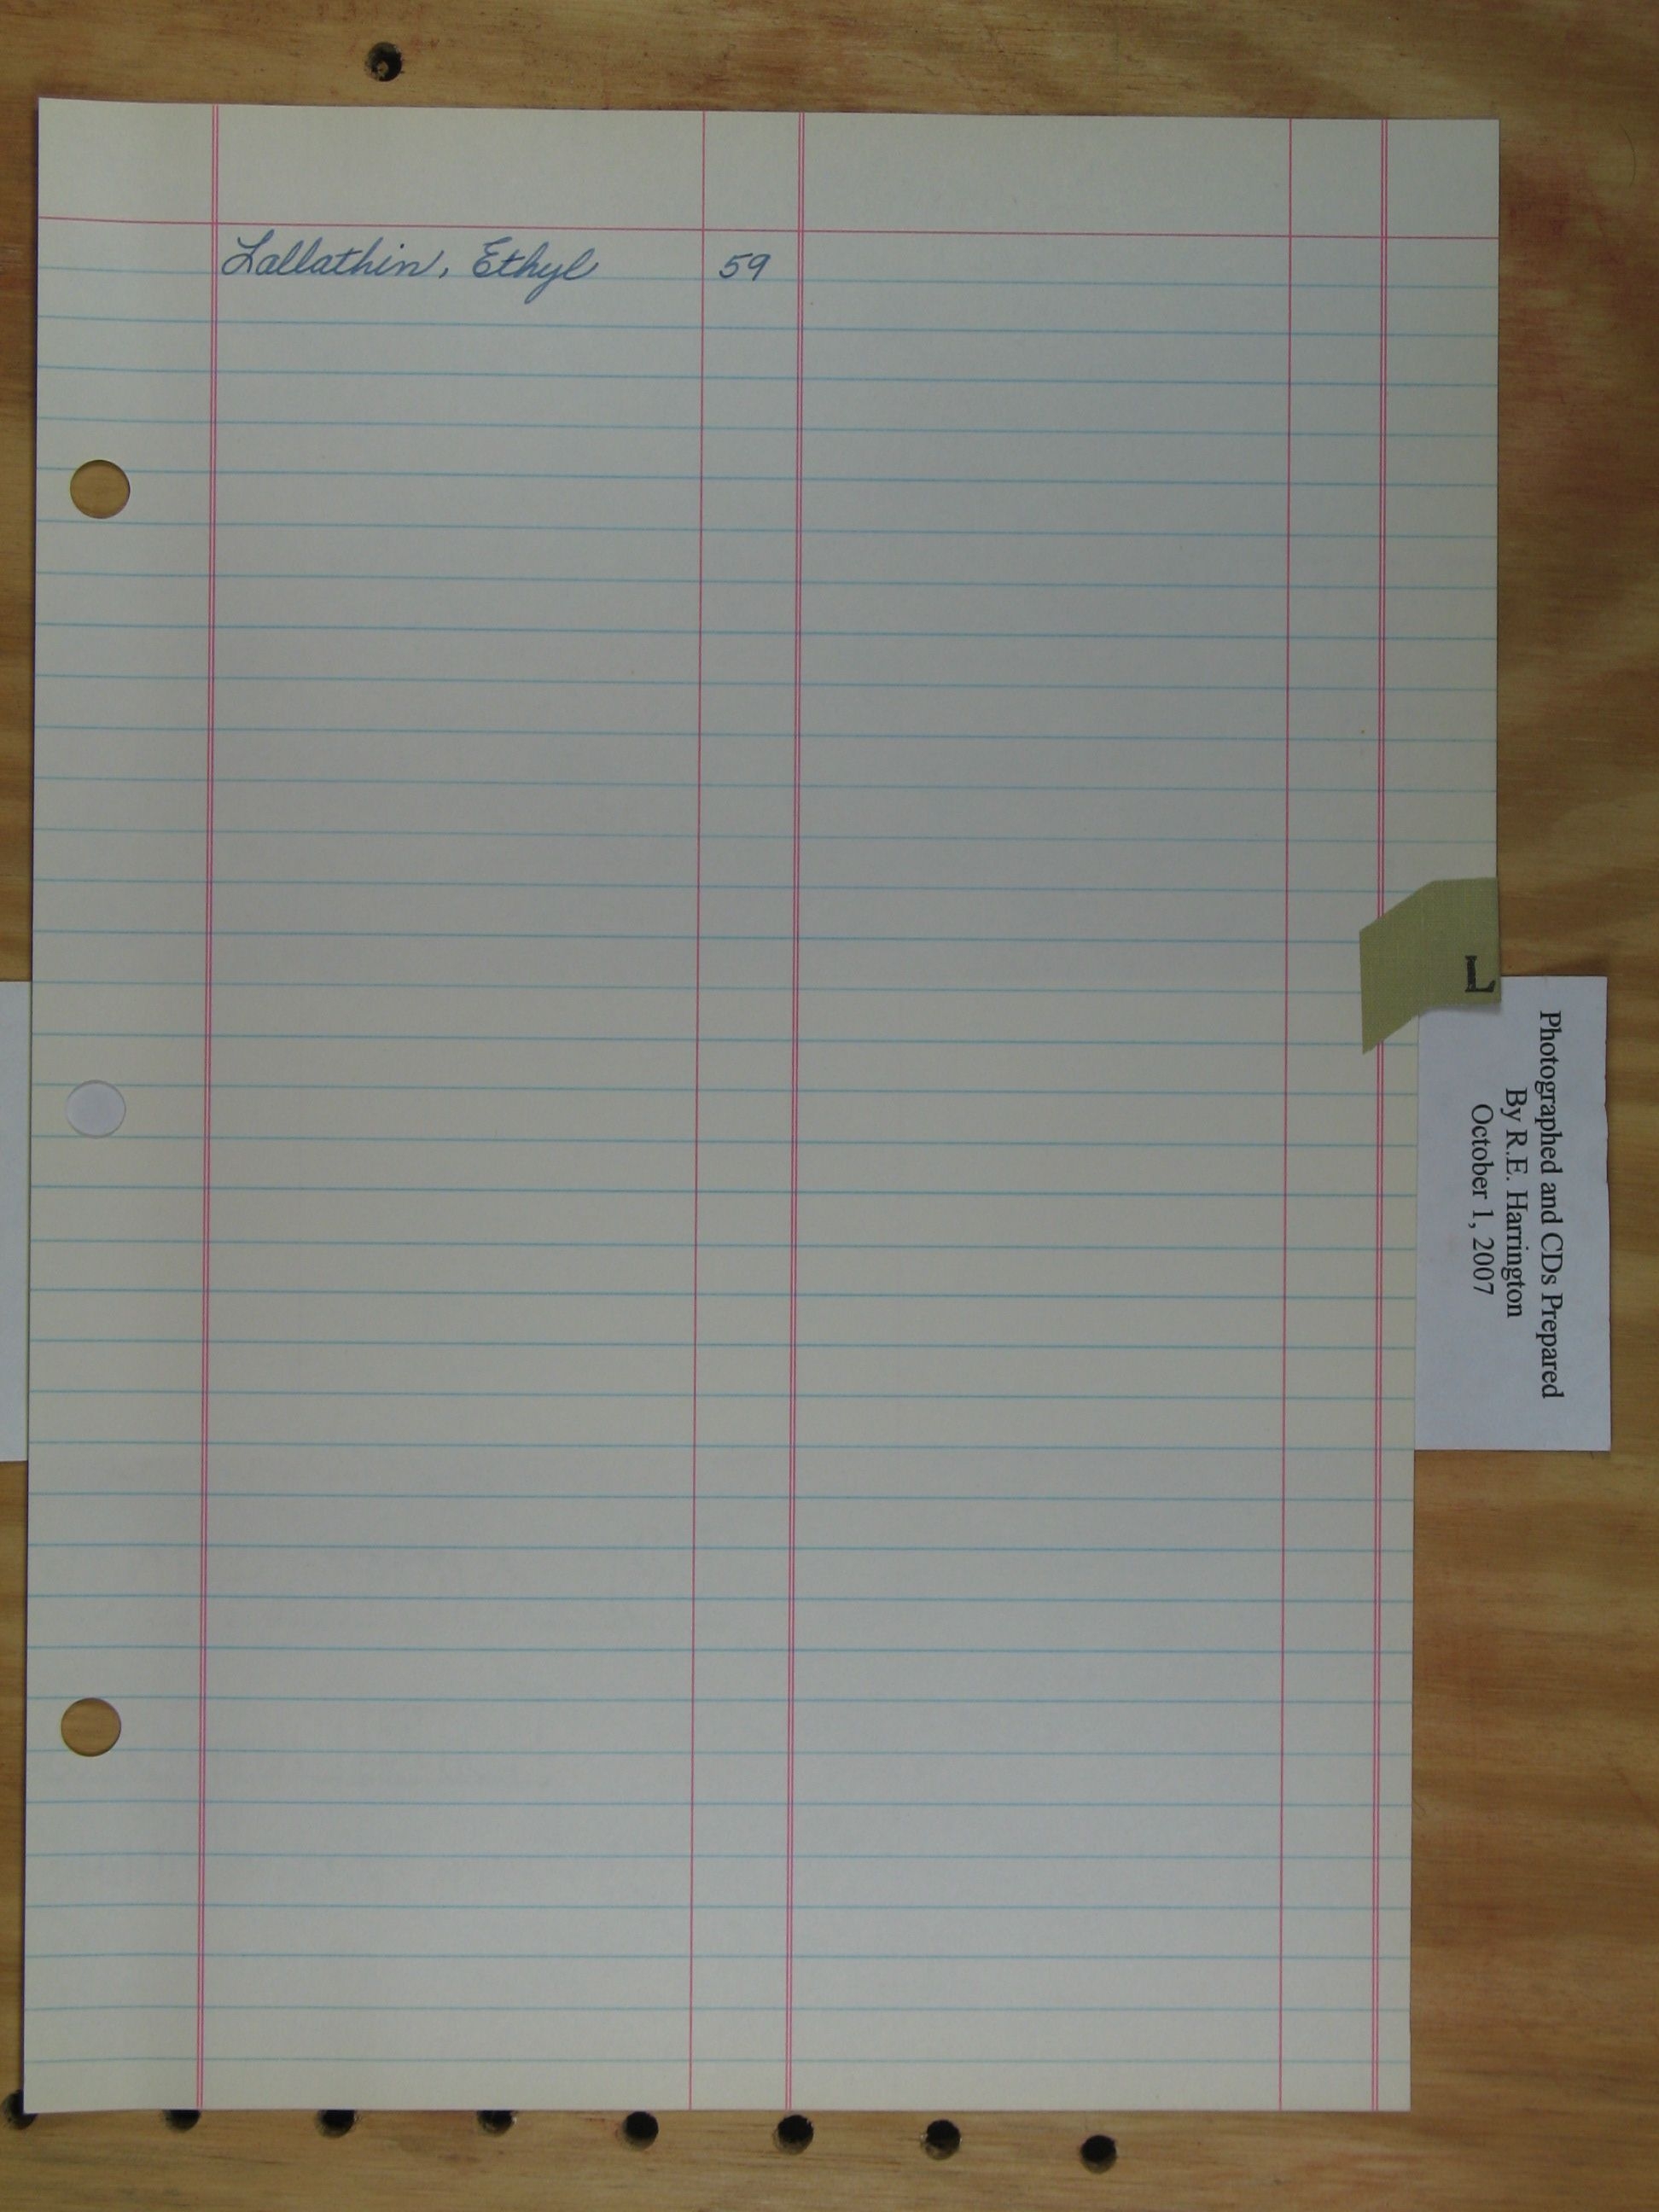 Lallathin, Ethyl 59
L
Photographed and CDs Prepared
By R.E. Harrington
October 1, 2007